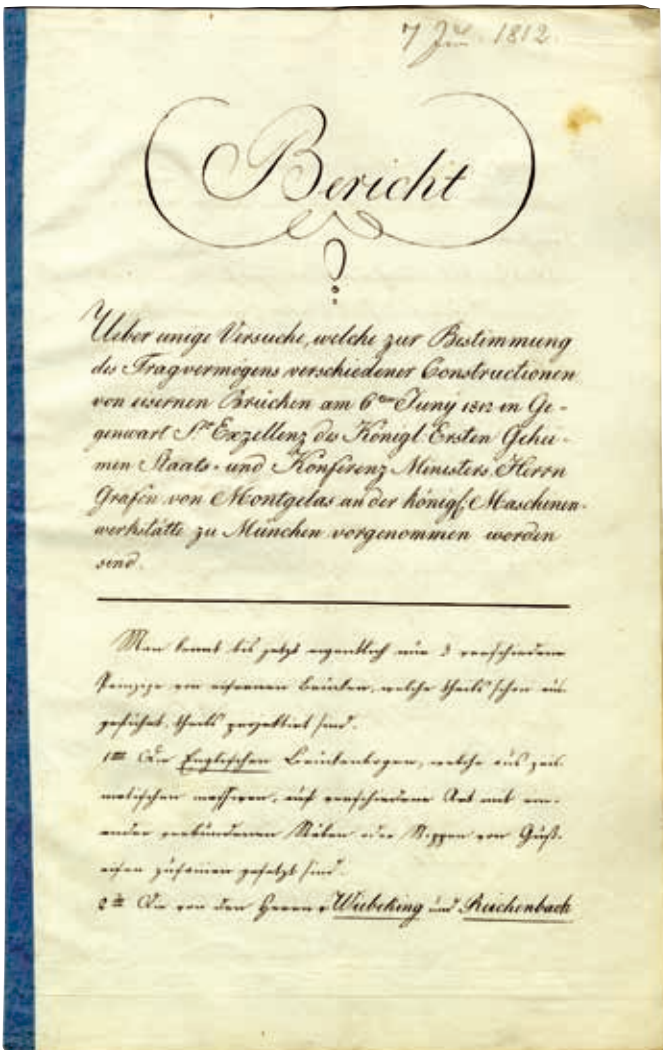 7 Juni 1812.
Bericht
Ueber einige Versuche, welche zur Bestimmung
des Tragvermögens verschiedener Constructionen
von eisernen Brücken am 6ten Juny 1812 in Ge-
genwart Sr Exzellenz des Königl. Ersten Gehei-
men Staats- und Konferenz Ministers Herrn
Grafen von Montgelas an der königl. Maschinen-
werkstätte zu München vorgenommen worden
sind.
Man kennt bis jetzt eigentlich nur 3 verschiedene
Prinzipe von eisernen Brücken, welche theils schon aus-
geführt, theils projektirt sind.
1te Die Englischen Brückenbogen, welche aus pris-
matischen massiven, auf verschiedene Art mit ein-
ander verbundenen Stäben oder Rippen von Guß-
eisen zusammen gesetzt sind.
2te Die von den Herrn v Wiebeking und Reichenbach